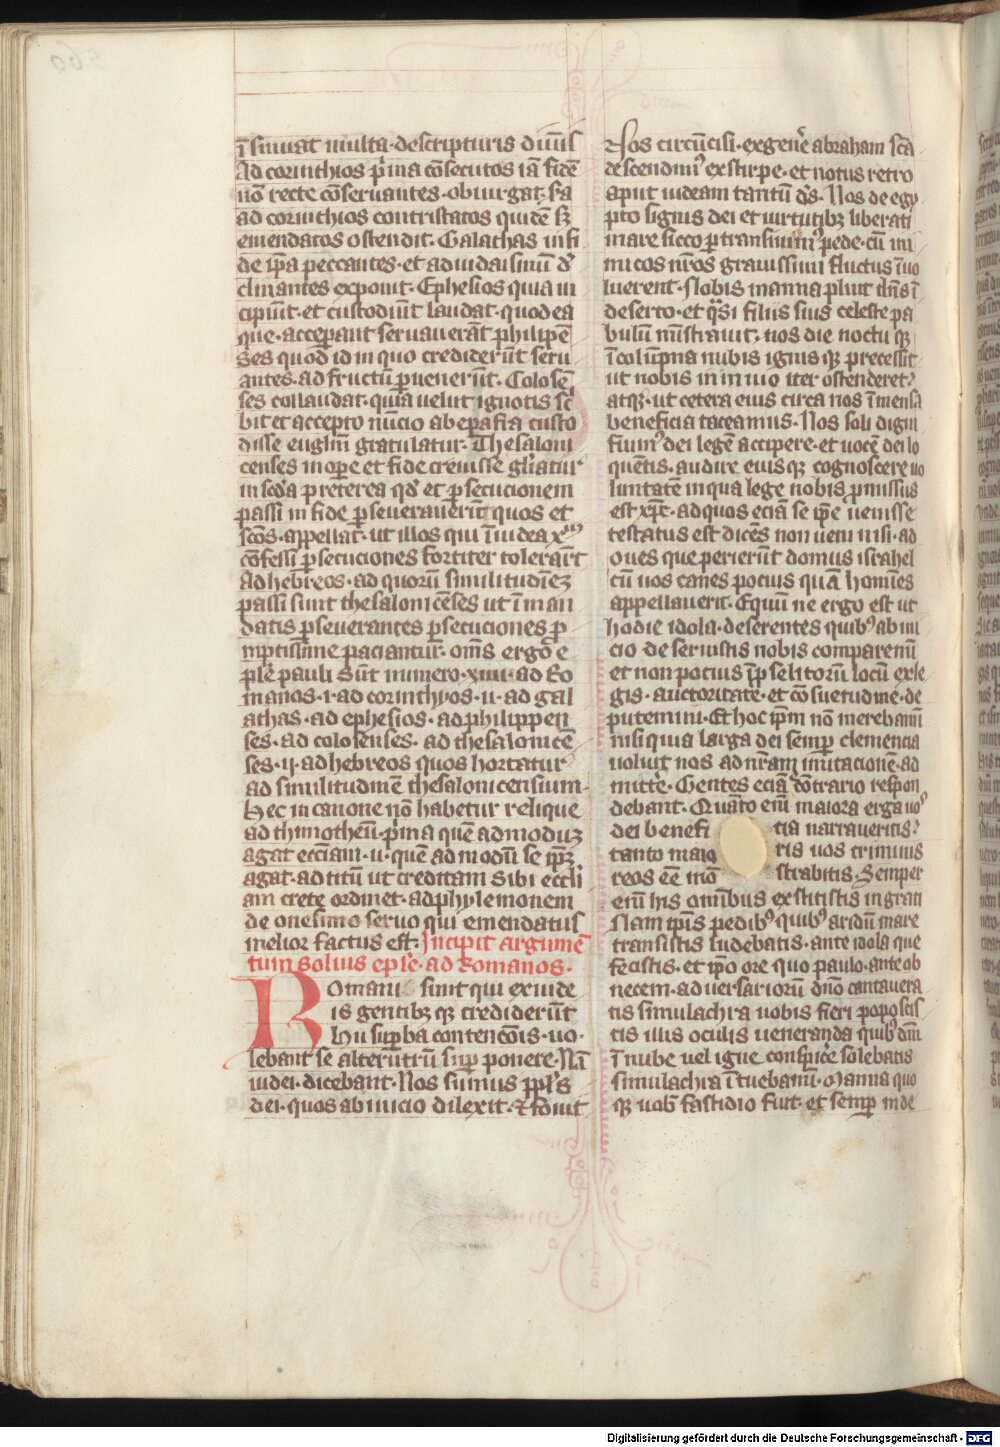 ī sinuat multa · descripturis diuinis
Ad corinthios p̄ma cōsecutos iā fidē
nō recte cōseruantes · obiurgat; sa
ad corinthios contristatos quidē sꝫ
emendatos ostendit · Galathas in fi
de ip̄a peccantes · et ad iudaismū d̾
clinantes exponit · Ephesios quia in
cipiūt · et custodiūt laudat · quod ea
que · acceperant seruauerāt philippē
ses quod id in quo crediderūt seru
antes · ad fructū ꝑuenerūt · Colosē
ses collaudat · quia uelut ignotis sc̄
bit et accepto nūcio ab epafra custo
disse eugl̄m gratulatur · Thesaloni
censes in oꝑe et fide creuisse gl̄iatur
in scd̄a p̄terea qd̾ et ꝑsecucionem
passi in fide ꝑseuerauerūt quos et
scōs · appellat · ut illos qui ī iudea xp̄m
cōfessi ꝑsecuciones fortiter tolerar̄t
Ad hebreos · ad quorū similitudīeꝫ
passi sunt thesalonicēses ut ī man
datis ꝑseuerantes ꝑsecuciones ꝓ
mptissime paciantur · om̄s ergo e
pl̄e pauli sūt numero · xiiii · ad Ro
manos · i · ad corinthyos · ii · ad gal
athas · ad ephesios · ad philippen
ses · ad colosenses · ad thesalonicē
ses · ii · ad hebreos quos hortatur
ad similitudinē thesalonicensium ·
hec in canone nō habetur relique
ad thimotheū · p̄ma quē ad moduꝫ
agat eccl̄iam · ii · quē ad modū se ip̄ꝫ
agat · ad titū ut creditam sibi eccl̄i
am crete ordinet · ad phylemonem
de onesimo seruo qui emendatus
melior factus est : Incipit argumē
tum solius epl̄e · ad Romanos ·
Romani sunt qui ex iude
is gentibꝫ qꝫ crediderūt
hii suꝑba contencōis · uo ·
lebant se alterutrū suꝑ ponere · Nā
iudei · dicebant · Nos sumus ppl̄s
dei · quos ab inicio dilexit · ⁊ fouit
Nos circūcisi · ex geñe abraham scā
descendimꝰ ex stirpe · et notus retro
aput iudeam tantū d̄s · Nos de egy
pto signis dei et uirtutibꝫ liberati
mare sicco ꝑtransiuimꝰ pede · cū ini
micos nr̄os grauissimi fluctus īuo
luerent · Nobis manna pluit dn̄s ī
deserto · et qͣsi filiis suis celeste pa
bulū mīstrauit · nos die noctu qꝫ
ī colūpna nubis ignis qꝫ precessit
ut nobis in inuio iter ostenderet ·
atqꝫ · ut cetera eius circa nos īmensa
beneficia taceamus · Nos soli digni
fuimꝰ dei legē accipere · et uocē dei lo
quētis · audire eius qꝫ cognoscere uo
luntatē in qua lege nobis ꝓmissus
est xp̄c · ad quos eciā se ip̄e uenisse
testatus est dicēs non ueni nisi · ad
oues que perierūt domus israhel
cū uos canes pocius quā homīes
appellauerit · Equū ne ergo est ut
hodie idola · deserentes quibꝰ ab ini
cio deseruistis nobis comparemī
et non potius ī ꝓselitorū locū ex le
gis · auctoritate · et cōsuetudine · de
putemini · Et hoc ip̄m nō merebamī
nisi quia larga dei semꝑ clemencia
uoluit nos ad nr̄am imitacionē · ad
mitt̾e · Gentes eciā cōtrario respon
debant · Quāto eni maiora erga uoꝰ
dei benefi cia narraueritis ·
tanto maio ris uos criminis
reos eē mō strabitis · Semper
eni his omībus extitistis ingrati
Nam ip̄is pedibꝰ quibꝰ aridū mare
transistis ludebatis · ante idola que
fecistis · et ip̄o ore quo paulo · ante ob
necem · aduersariorū dn̄o cantauera
tis simulachra uobis fieri poposcis
tis illis oculis ueneranda quibꝰ dm̄
ī nube uel igne conspic̾e solebatis
simulachra ītuebamī · Manna quo
qꝫ uob̄ fastidio fuit · et semꝑ in de
Digitalisierung gefördert durch die Deutsche Forschungsgemeinschaft - DFG